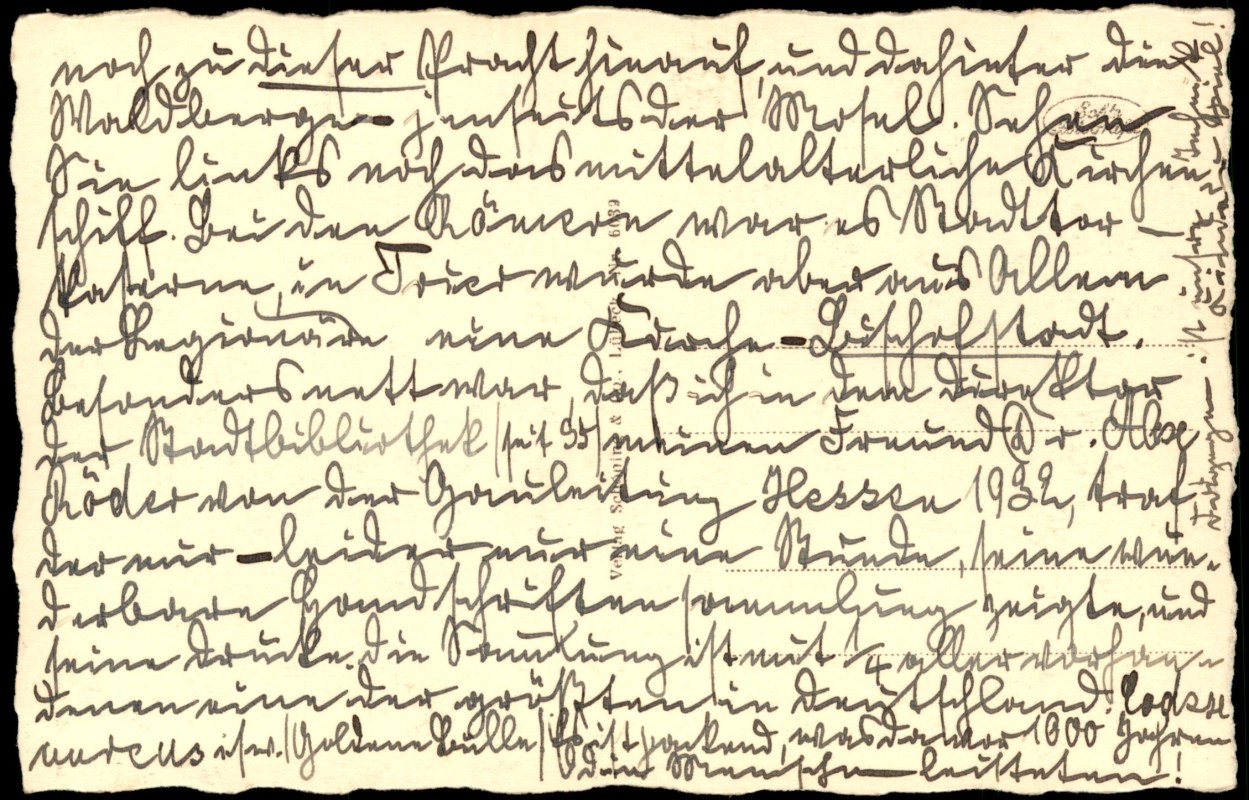 noch zu dieser Pracht hinauf, und dahinter die
Waldberge - jenseits der Mosel. Sehen
Sie links noch das mittelalterliche Kirchen
schiff. Bei den Römern war es Stadttor -
Kaserne, in Trier wurde aber aus Allem
der Legionäre eine Kirche - Bischofstadt.
Besonders nett war, daß ich in dem Direktor
der Stadtbibliothek (seit 35) meinen Freund Dr.
Röder von der Gauleitung Hessen 1932, traf
der mir - leider nur eine Stunde, seine wun-
derbare Handschriftensammlung zeigte, und
seine Drucke. Die Sammlung ist mit 1/4 aller vorhan-
denen eine der größten in Deutschland. Codex
aureus usw. (Goldene Bulle) Es ist packend, was da vor 1000 Jahren
Menschen leisteten!
Verlag Schöning & Co., Lübeck